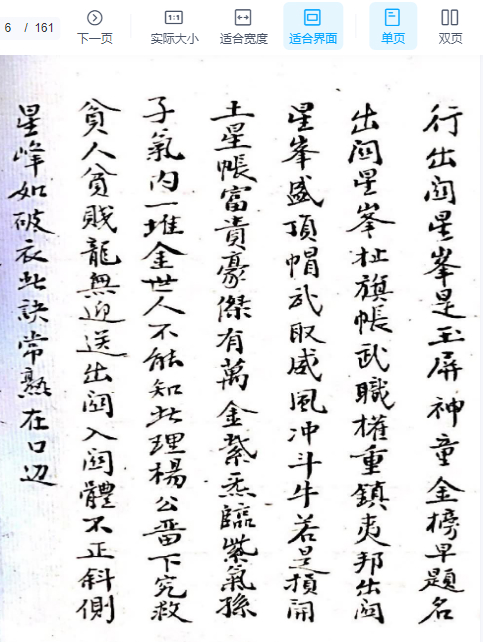 6 / 161
下一页
实际大小
适合宽度
适合界面
单页
双页
行出闗星峯是玉屏神童金榜早题名
出闗星峯扯旗帳武職權重鎮夷邦出闗
星峯盛頂帽武职威風冲斗牛若是損開
土星帳富貴豪傑有萬金紫炁臨紫氣孫
子氣内一堆金世人不能知此理楊公畱下究救
貧人貧賎龍無迎送出闗入闗體不正斜側
星峰如破衣此訣常熟在口辺